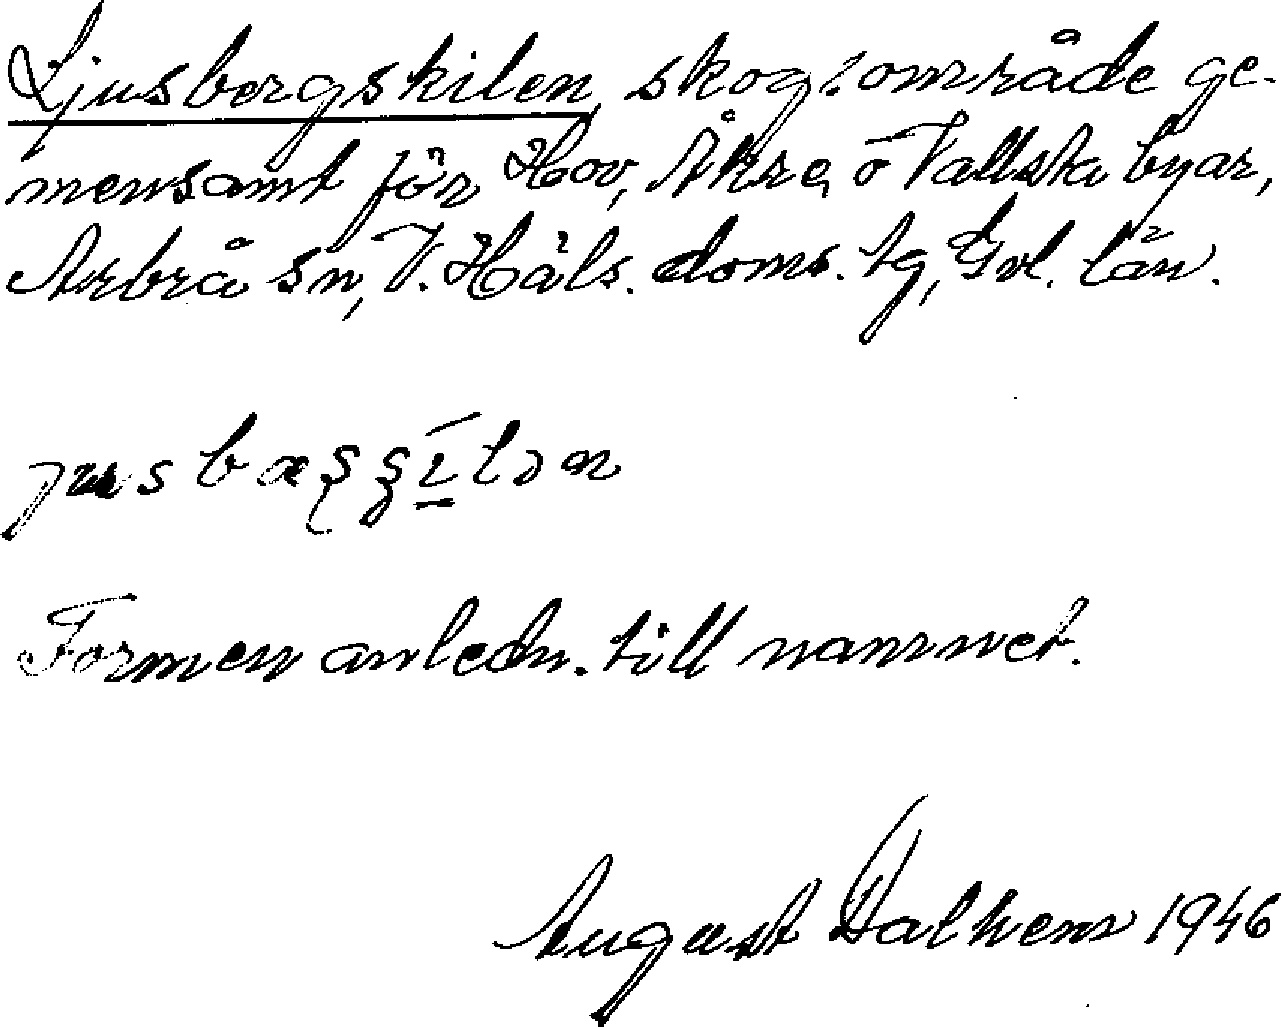 Ljusbergskilen, skogsområde ge-
mensamt för Hov, Åkre, o Vallsta byar,
Arbrå sn, V. Häls. doms. lg, Gvl. län.
Formen anledn. till namnet.
August 1946